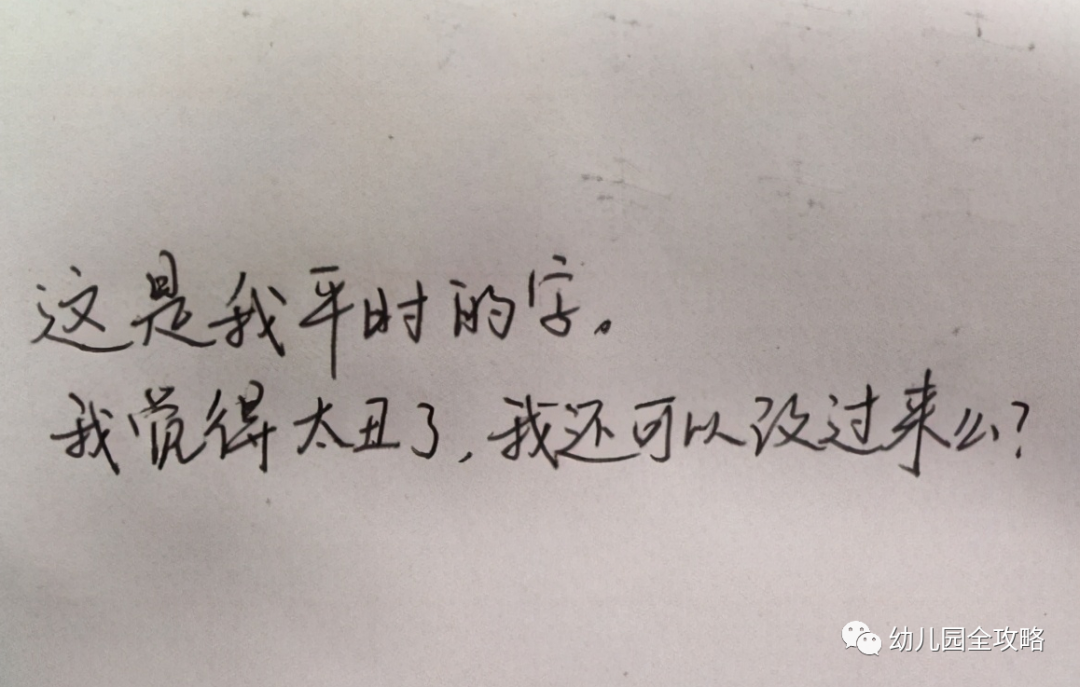 这是我平时的字。
我觉得太丑了,我还可以改过来么?
幼儿园全攻略